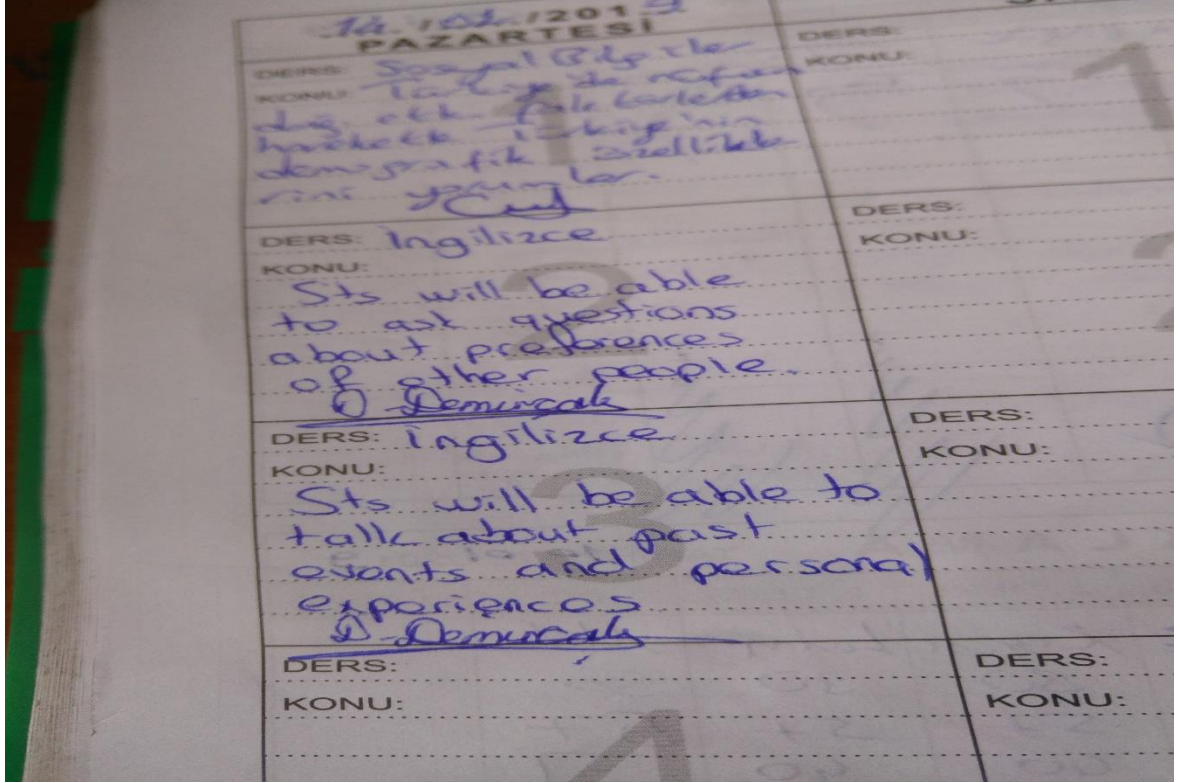 14 /01 /2019
PAZARTESİ
DERS: Sosyal Bilgiler
KONU: Türkiye'de nüfusun
hareketle Türkiye'nin
demografik özellikle
rini yorumlar.
DERS: İngilizce
KONU:
Sts will be able
to ask questions
about preferences
of other people.
D. Demircalı
DERS: İngilizce
KONU:
Sts will be able to
talk about past
events and personal
experiences
D. Demircalı
DERS:
KONU:
4
DERS:
KONU:
1
DERS:
KONU:
2
DERS:
KONU:
DERS:
KONU: